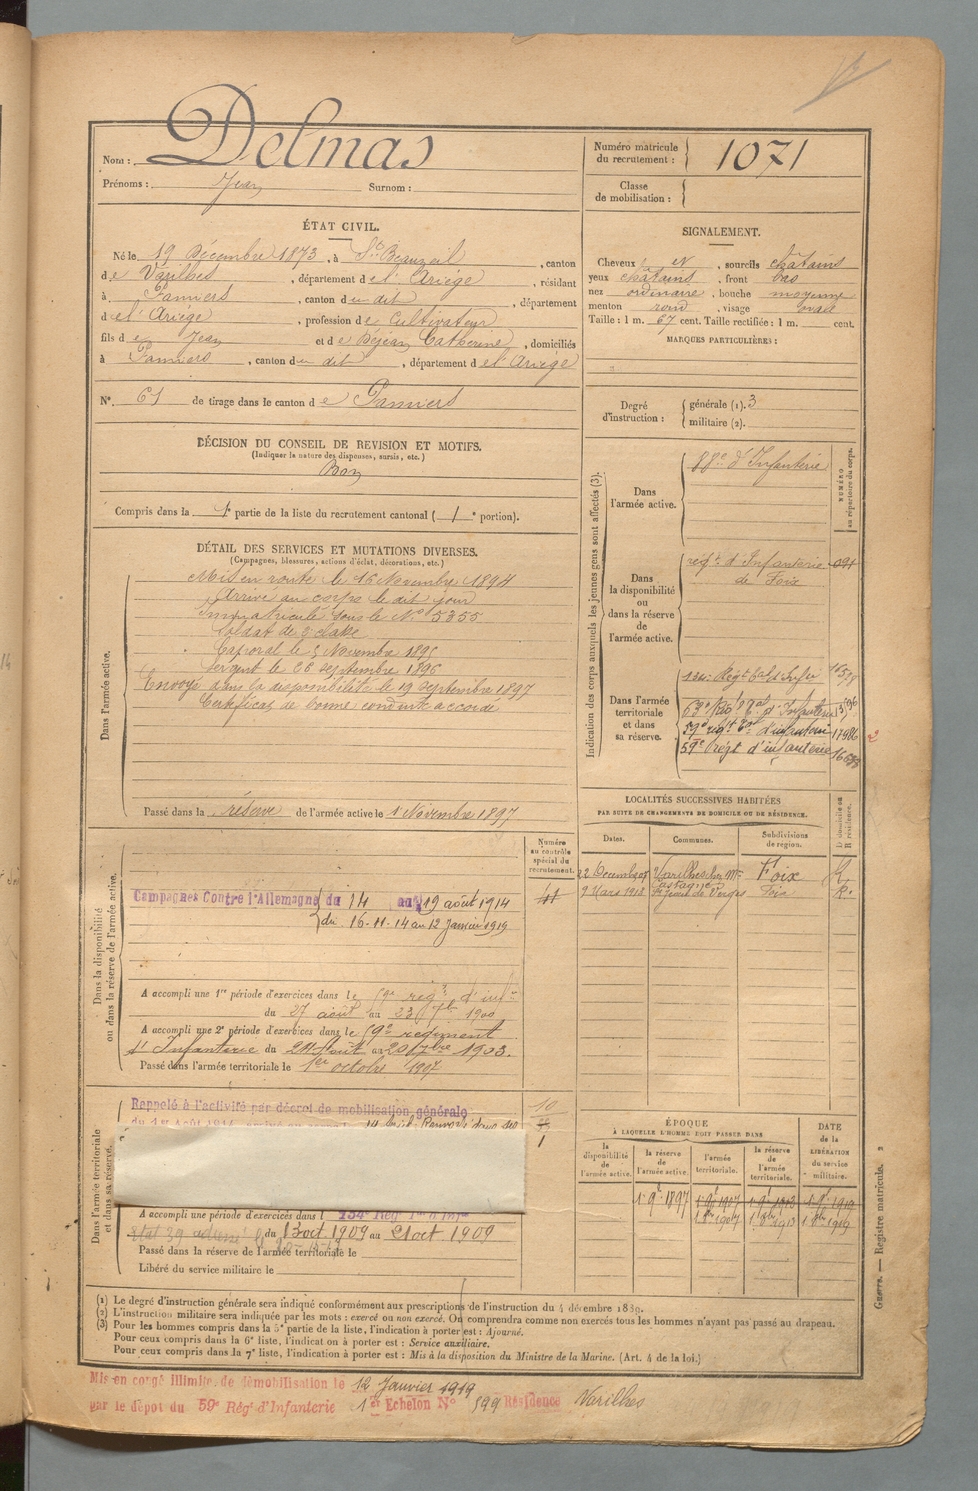 Nom : Delmas
Prénoms : Jean Surnom :
Numéro matricule du recrutement : 1071
Classe de mobilisation :
ÉTAT CIVIL.
Né le 19 Décembre 1873, à St Beauzeil, canton
de Varilhes, département de l'Ariège, résidant
à Pamiers, canton du dit, département
de l'Ariège, profession de Cultivateur
fils de Jean et de Béjean Catherine, domiciliés
à Pamiers, canton du dit, département de l'Ariège
N°. 61 de tirage dans le canton de Pamiers
SIGNALEMENT.
Cheveux et, sourcils châtains
yeux châtains, front bas
nez ordinaire, bouche moyenne
menton rond, visage ovale
Taille : 1 m. 67 cent. Taille rectifiée : 1 m. cent.
MARQUES PARTICULIÈRES :
"
Degré d'instruction : générale (1). 3
militaire (2).
DÉCISION DU CONSEIL DE REVISION ET MOTIFS.
(Indiquer la nature des dispenses, sursis, etc.)
Bon
Compris dans la 1e partie de la liste du recrutement cantonal (1e portion).
DÉTAIL DES SERVICES ET MUTATIONS DIVERSES.
(Campagnes, blessures, actions d'éclat, décorations, etc.)
Dans l'armée active.
Mis en route le 16 Novembre 1894
Arrivé au corps le dit jour
Immatriculé sous le N° 5355
Soldat de 2e classe
Caporal le 5 Novembre 1895
Sergent le 28 Septembre 1896
Envoyé dans la disponibilité le 19 Septembre 1897
Certificat de bonne conduite accordé
Passé dans la réserve de l'armée active le 1 Novembre 1897
Indication des corps auxquels les jeunes gens sont affectés (3).
NUMÉRO au répertoire du corps.
Dans l'armée active.
88e d'Infanterie
Dans la disponibilité ou dans la réserve de l'armée active.
régt d'Infanterie 094
de Foix
Dans l'armée territoriale et dans sa réserve.
134e Régt tal d'Infie
59e régt tal d'infanterie 17986
59e régt d'infanterie
LOCALITÉS SUCCESSIVES HABITÉES
PAR SUITE DE CHANGEMENTS DE DOMICILE OU DE RÉSIDENCE.
Dates. Communes. Subdivisions de région. D. domicile ou R. résidence.
22 Décembre Varilhes Foix R.
9 Mars 1918 St Jean de Verges Foix R.
Dans la disponibilité ou dans la réserve de l'armée active.
Numéro au contrôle spécial du recrutement.
Campagnes Contre l'Allemagne du 14 au 19 août 1914
du 16-11-14 au 12 Janvier 1919
A accompli une 1re période d'exercices dans le 59e régt d'infie
du 27 août au 23 7bre 1900
A accompli une 2e période d'exercices dans le 59e régiment
d'Infanterie du 24 août au 20 7bre 1903.
Passé dans l'armée territoriale le 1er octobre 1907
Dans l'armée territoriale et dans sa réserve.
Rappelé à l'activité par décret de mobilisation générale
10
1
A accompli une période d'exercices dans l 134e Rég' Tal d'Infie
du 13 oct 1909 au 21 oct 1909
Passé dans la réserve de l'armée territoriale le
Libéré du service militaire le
ÉPOQUE
À LAQUELLE L'HOMME DOIT PASSER DANS
la disponibilité de l'armée active. la réserve de l'armée active. l'armée territoriale. la réserve de l'armée territoriale. DATE de la LIBÉRATION du service militaire.
1 9bre 1897 1 9bre 1907 1 9bre 1913 1 9bre 1919
1 8bre 1907 1 8bre 1913 1 8bre 1919
Guerre. — Registre matricule. 2
(1) Le degré d'instruction générale sera indiqué conformément aux prescriptions de l'instruction du 4 décembre 1889.
(2) L'instruction militaire sera indiquée par les mots : exercé ou non exercé. On comprendra comme non exercés tous les hommes n'ayant pas passé au drapeau.
(3) Pour les hommes compris dans la 5e partie de la liste, l'indication à porter est : Ajourné.
Pour ceux compris dans la 6e liste, l'indication à porter est : Service auxiliaire.
Pour ceux compris dans la 7e liste, l'indication à porter est : Mis à la disposition du Ministre de la Marine. (Art. 4 de la loi.)
Mis en congé illimité de démobilisation le 12 Janvier 1919
par le dépôt du 59e Rég' d'Infanterie 1er Echelon N° 599 Résidence Varilhes